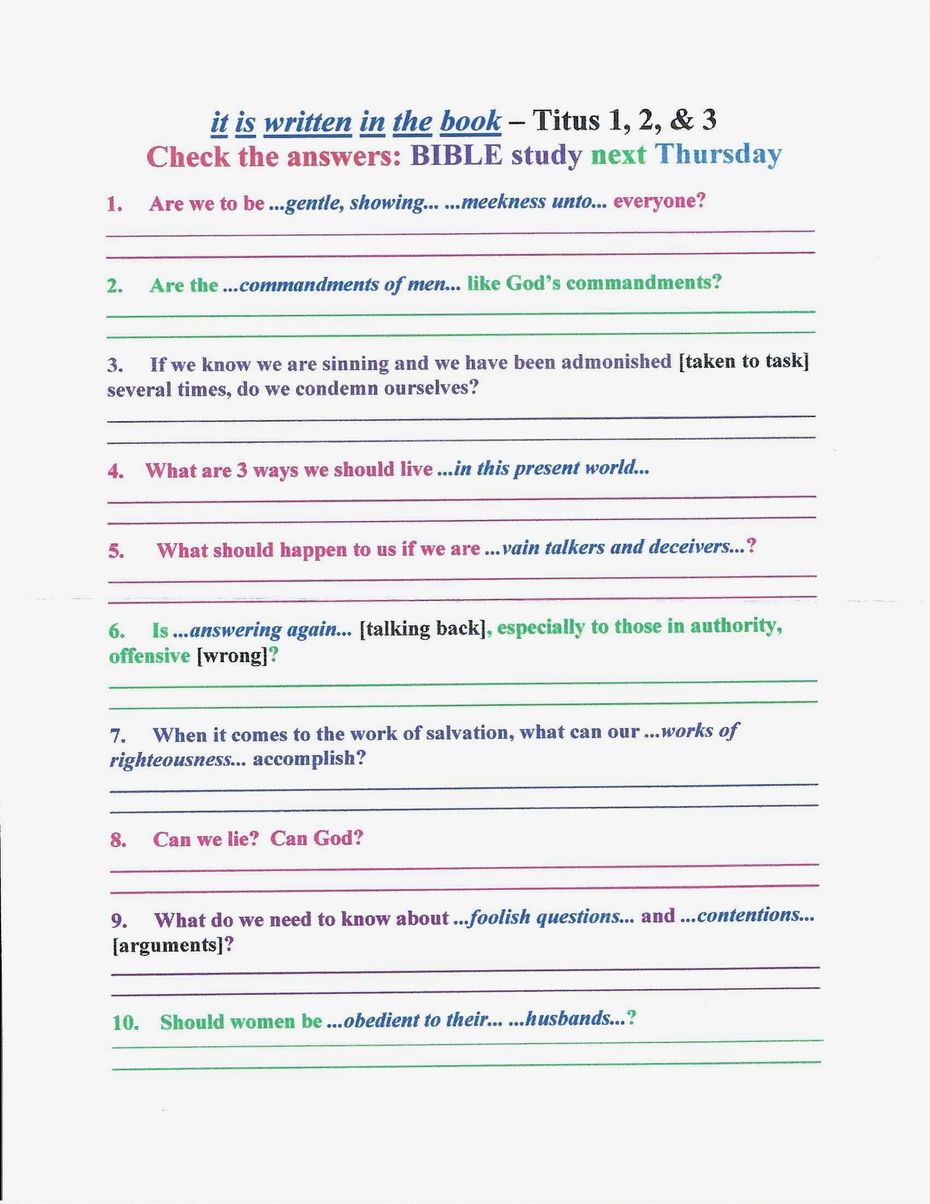 it is written in the book – Titus 1, 2, & 3
Check the answers: BIBLE study next Thursday
1. Are we to be ...gentle, showing... ...meekness unto... everyone?
2. Are the ...commandments of men... like God's commandments?
3. If we know we are sinning and we have been admonished [taken to task]
several times, do we condemn ourselves?
4. What are 3 ways we should live ...in this present world...
5. What should happen to us if we are ...vain talkers and deceivers...?
6. Is ...answering again... [talking back], especially to those in authority,
offensive [wrong]?
7. When it comes to the work of salvation, what can our ...works of
righteousness... accomplish?
8. Can we lie? Can God?
9. What do we need to know about ...foolish questions... and ...contentions...
[arguments]?
10. Should women be ...obedient to their... ...husbands...?